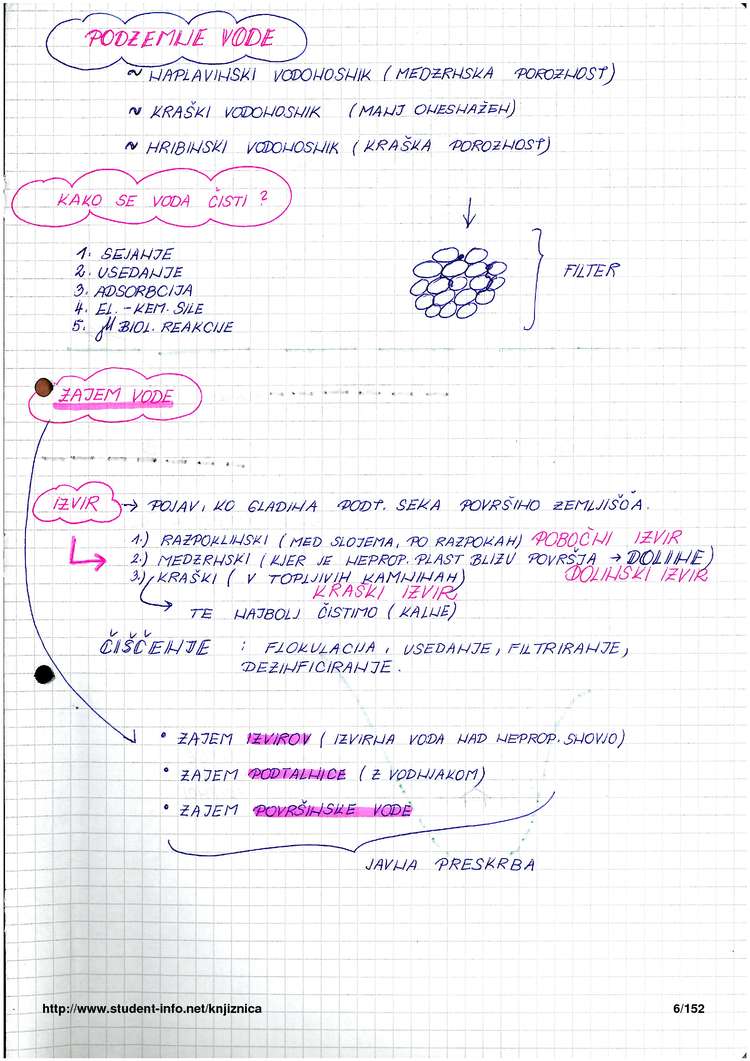 PODZEMNE VODE
~ NAPLAVINSKI VODONOSNIK (MEDZRNSKA POROZNOST)
~ KRAŠKI VODONOSNIK (MANJ ONESNAŽEN)
~ HRIBINSKI VODONOSNIK (KRAŠKA POROZNOST)
KAKO SE VODA ČISTI?
1. SEJANJE
2. USEDANJE
3. ADSORBCIJA
4. EL.-KEM. SILE
5. µBIOL. REAKCIJE
FILTER
ZAJEM VODE
IZVIR → POJAV, KO GLADINA PODT. SEKA POVRŠINO ZEMLJIŠČA.
1.) RAZPOKLINSKI (MED SLOJEMA, PO RAZPOKAH) POBOČNI IZVIR
2.) MEDZRNSKI (KJER JE NEPROP. PLAST BLIZU POVRŠJA → DOLINE)
DOLINSKI IZVIR
3.) KRAŠKI (V TOPLJIVIH KAMNINAH)
KRAŠKI IZVIR
TE NAJBOLJ ČISTIMO (KALNE)
ČIŠČENJE : FLOKULACIJA, USEDANJE, FILTRIRANJE,
DEZINFICIRANJE.
• ZAJEM IZVIROV (IZVIRNA VODA NAD NEPROP. SNOVJO)
• ZAJEM PODTALNICE (Z VODNJAKOM)
• ZAJEM POVRŠINSKE VODE
JAVNA PRESKRBA
http://www.student-info.net/knjiznica 6/152